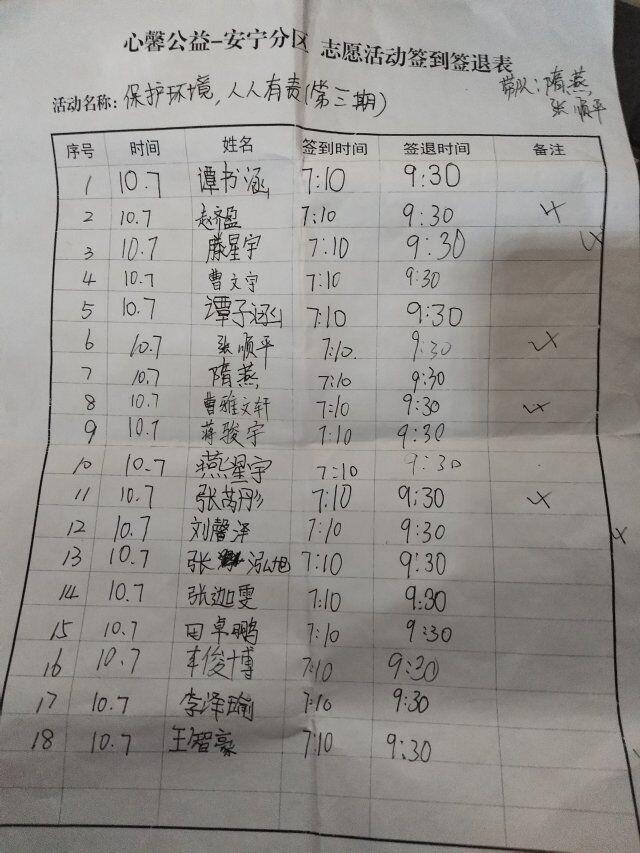 心馨公益-安宁分区 志愿活动签到签退表
带队:隋燕
张顺平
活动名称:保护环境,人人有责(第三期)
序号 时间 姓名 签到时间 签退时间 备注
1 10.7 谭书涵 7:10 9:30
2 10.7 赵齐盈 7:10 9:30
3 10.7 滕星宇 7:10 9:30
4 10.7 曹文宇 7:10 9:30
5 10.7 谭子涵 7:10 9:30
6 10.7 张顺平 7:10. 9:30
7 10.7 隋燕 7:10 9:30
8 10.7 曹雅文轩 7:10 9:30
9 10.7 蒋骏宇 7:10 9:30
10 10.7 燕星宇 7:10 9:30
11 10.7 张芮彤 7:10 9:30
12 10.7 刘馨泽 7:10 9:30
13 10.7 张泓旭 7:10 9:30
14 10.7 张迦雯 7:10 9:30
15 10.7 田卓鹏 7:10 9:30
16 10.7 俊博 7:10 9:30
17 10.7 李泽瑜 7:10 9:30
18 10.7 王智豪 7:10 9:30